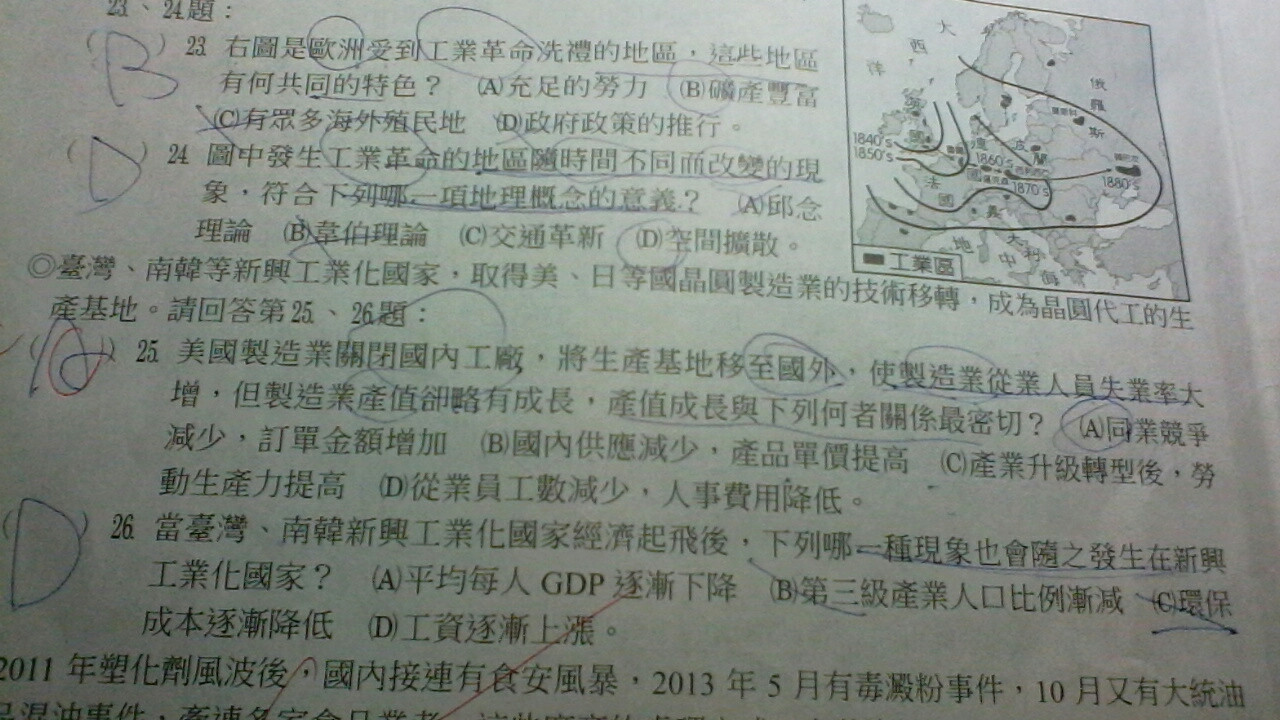 23、24題：
(B) 23. 右圖是歐洲受到工業革命洗禮的地區，這些地區
有何共同的特色？ (A)充足的勞力 (B)礦產豐富
(C)有眾多海外殖民地 (D)政府政策的推行。
(D) 24. 圖中發生工業革命的地區隨時間不同而改變的現
象，符合下列哪一項地理概念的意義？ (A)邱念
理論 (B)韋伯理論 (C)交通革新 (D)空間擴散。
大
西
洋
俄
羅
斯
1840's
1850's
1860's
1870's
1880's
德
波
蘭
法
國
地
中
海
義
大
利
工業區
◎臺灣、南韓等新興工業化國家，取得美、日等國晶圓製造業的技術移轉，成為晶圓代工的生
產基地。請回答第25、26題：
25. 美國製造業關閉國內工廠，將生產基地移至國外，使製造業從業人員失業率大
增，但製造業產值卻略有成長，產值成長與下列何者關係最密切？ (A)同業競爭
減少，訂單金額增加 (B)國內供應減少，產品單價提高 (C)產業升級轉型後，勞
動生產力提高 (D)從業員工數減少，人事費用降低。
(D) 26. 當臺灣、南韓新興工業化國家經濟起飛後，下列哪一種現象也會隨之發生在新興
工業化國家？ (A)平均每人 GDP 逐漸下降 (B)第三級產業人口比例漸減 (C)環保
成本逐漸降低 (D)工資逐漸上漲。
2011 年塑化劑風波後，國內接連有食安風暴，2013 年 5 月有毒澱粉事件，10 月又有大統油